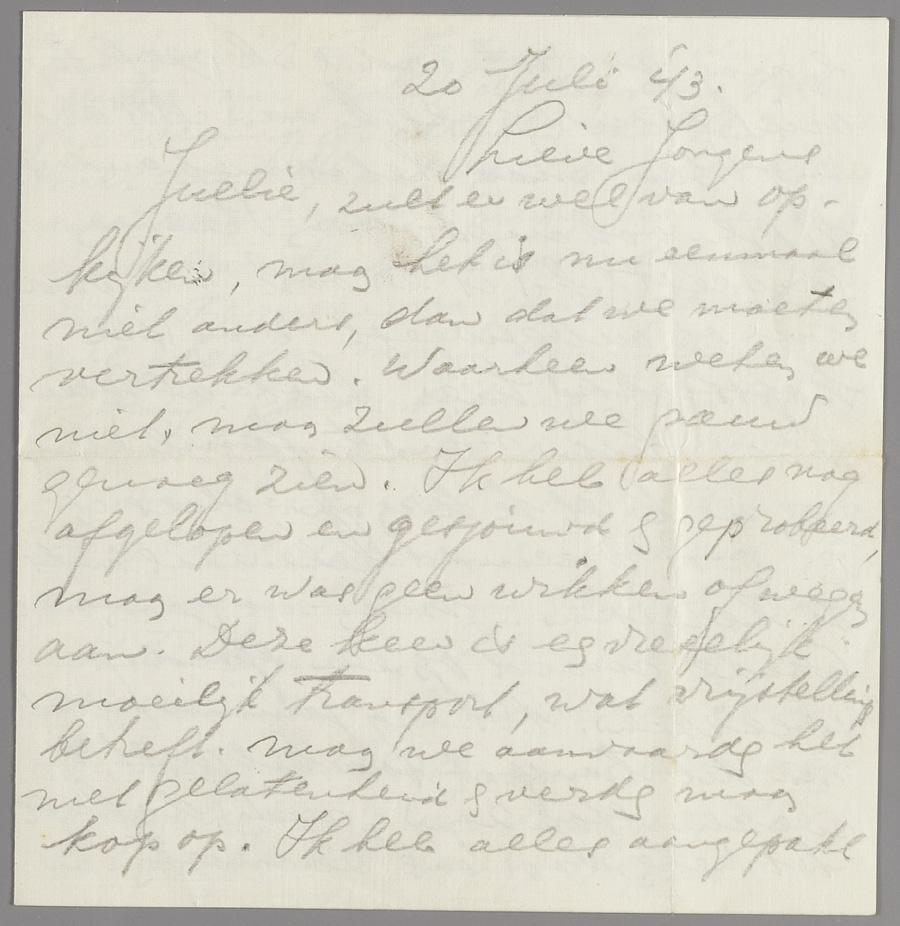 20 Juli 43.
Lieve Jongens
Jullie, zult er wel van op-
kijken, maar het is nu eenmaal
niet anders, dan dat we moeten
vertrekken. Waarheen weten we
niet, maar zullen we
genoeg zien. Ik heb alles nog
afgelopen en gesjouwd & geprobeerd,
maar er was geen wikken of wegen
aan. Deze keer is
moeilijk transport, wat vrijstelling
betreft. maar we aanvaarden het
met gelatenheid & verder maar
kop op. Ik heb alles aangepakt